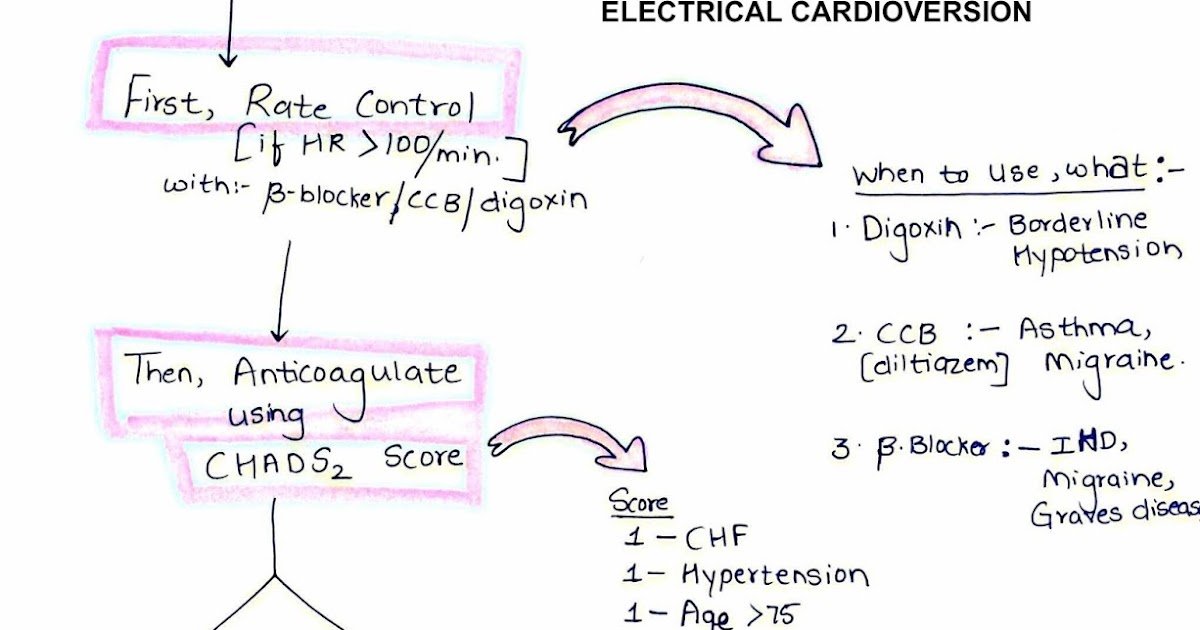 ELECTRICAL CARDIOVERSION
First, Rate Control
[if HR >100/min.]
with:- β-blocker/CCB/digoxin
When to use, what:-
1. Digoxin :- Borderline
Hypotension
2. CCB :- Asthma,
[diltiazem] Migraine.
3. β.Blocker :- IHD,
Migraine,
Graves diseas
Then, Anticoagulate
using
CHADS₂ Score
Score
1 - CHF
1 - Hypertension
1 - Age >75